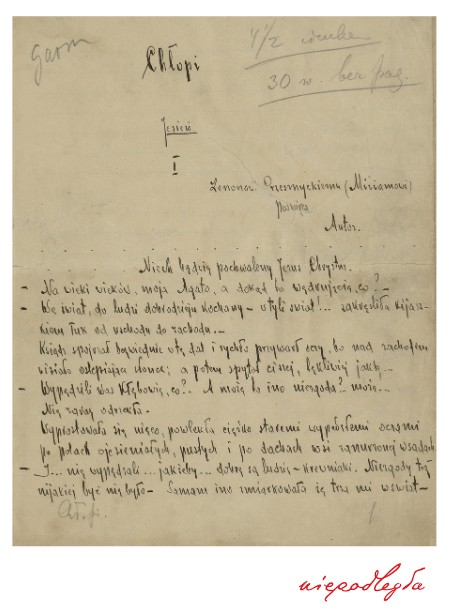 garm
4 1/2
30 w. bez pag.
Chłopi
Jesień
I
Zenonowi Przesmyckiemu (Miriamowi)
Autor.
Niech będzie pochwalony Jezus Chrystus.
– Na wieki wieków, moja Agato, a dokąd to wędrujecie, co? –
– We świat, do ludzi dobrodzieju kochany – w tyli świat!... zakreśliła kijasz-
kiem łuk od wschodu do zachodu. –
Ksiądz spojrzał bezwiednie w tę dal i rychło przywarł oczy, bo nad zachodem
wisiało oślepiające słońce; a potem spytał ciszej, lękliwiej jakby –
– Wypędzili was Kłębowie, co?.. A może to ino niezgoda?.. może...
Nie zaraz odrzekła.
Wyprostowała się nieco, powlekła ciężko staremi wypełzłemi oczami
po polach ojesieniałych, pustych i po dachach wsi zanurzonej w sadach.
– I... nie wypędzali... jakżeby... dobre są ludzie – krewniaki. Niezgody też
nijakiej być nie było – Samam ino zmiarkowała że trza mi w świat –
1
niepodległa